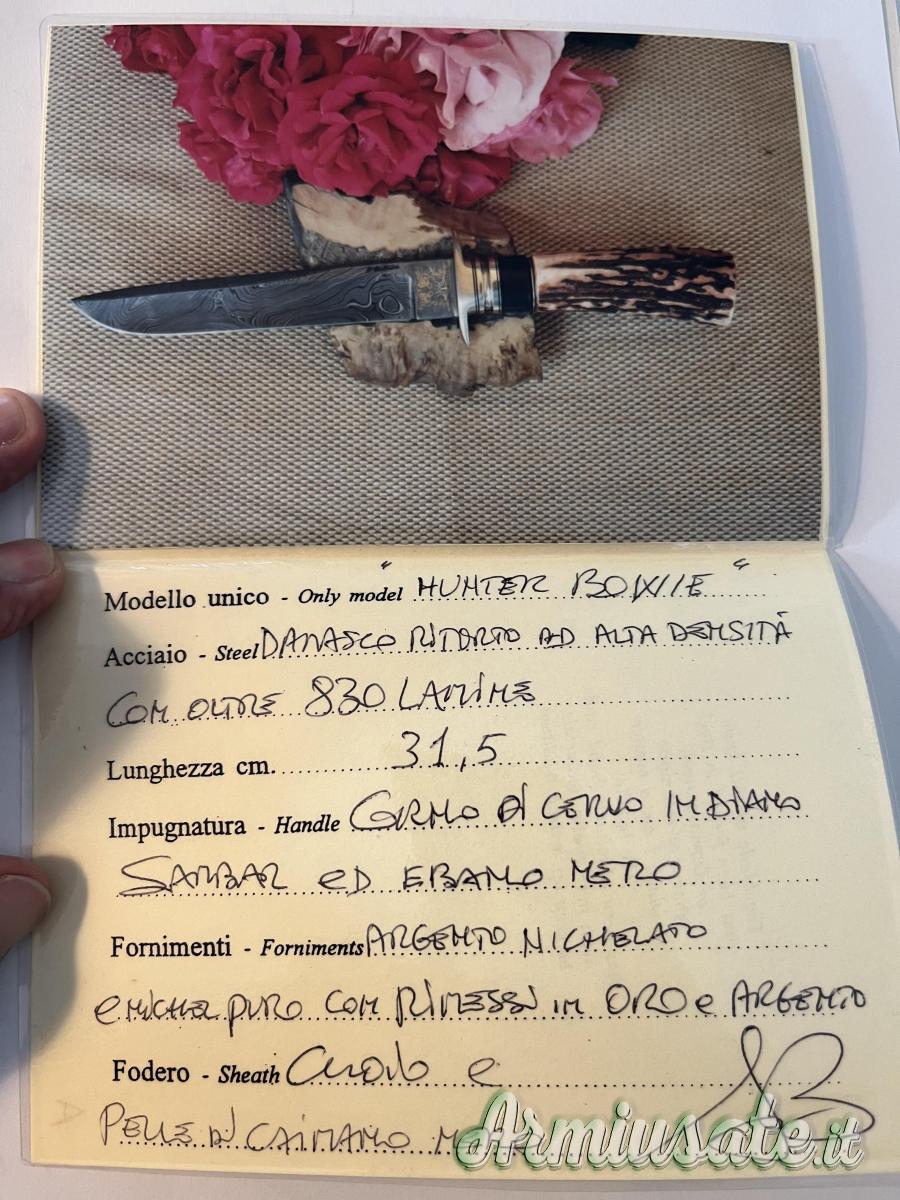 Modello unico - Only model " HUNTER BOWIE "
Acciaio - Steel DAMASCO RITORTO AD ALTA DENSITÀ
CON OLTRE 830 LAMINE
Lunghezza cm. 31,5
Impugnatura - Handle CORNO DI CERVO INDIANO
SAMBAR ED EBANO NERO
Fornimenti - Forniments ARGENTO NICHELATO
e NICHEL PURO CON RIMESSI in ORO e ARGENTO
Fodero - Sheath Cuoio e
PELLE DI CAIMANO
Armiusate.it